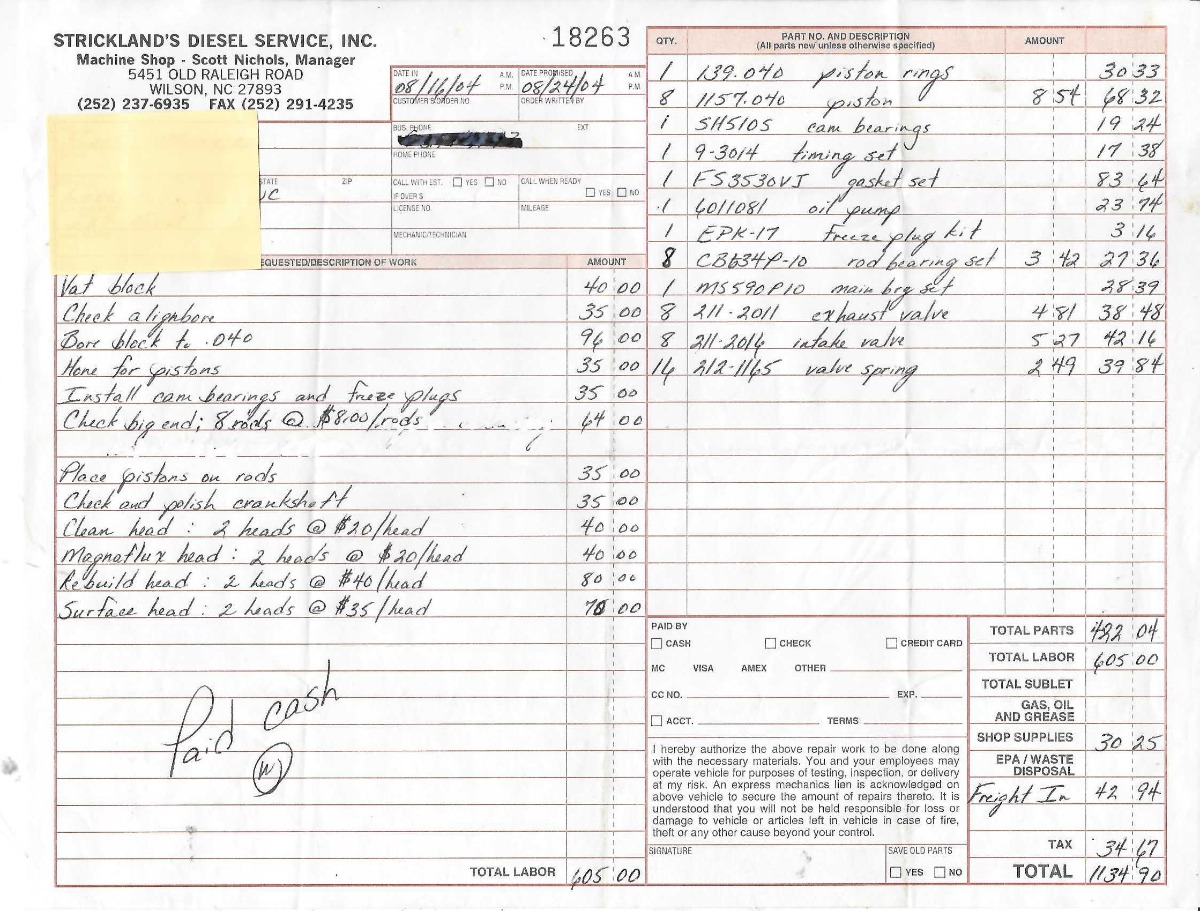 STRICKLAND'S DIESEL SERVICE, INC.
Machine Shop - Scott Nichols, Manager
5451 OLD RALEIGH ROAD
WILSON, NC 27893
(252) 237-6935 FAX (252) 291-4235
18263
DATE IN A.M. P.M. 08/16/04
DATE PROMISED A.M. P.M. 08/24/04
CUSTOMER'S ORDER NO.
ORDER WRITTEN BY
BUS. PHONE EXT
HOME PHONE
STATE ZIP
CALL WITH EST. YES NO
CALL WHEN READY YES NO
IF OVER $
LICENSE NO.
MILEAGE
MECHANIC/TECHNICIAN
EQUESTED/DESCRIPTION OF WORK AMOUNT
Vat block 40 00
Check alignbore 35 00
Bore block to .040 96 00
Hone for pistons 35 00
Install cam bearings and freeze plugs 35 00
Check big end; 8 rods @ $8.00/rods 64 00
Place pistons on rods 35 00
Check and polish crankshaft 35 00
Clean head : 2 heads @ $20/head 40 00
Magnaflux head : 2 heads @ $20/head 40 00
Rebuild head : 2 heads @ $40/head 80 00
Surface head : 2 heads @ $35/head 70 00
Paid cash
TOTAL LABOR 605 00
QTY. PART NO. AND DESCRIPTION AMOUNT
(All parts new unless otherwise specified)
1 139.040 piston rings 30 33
8 1157.040 piston 8 54 68 32
1 SH510S cam bearings 19 24
1 9-3014 timing set 17 38
1 FS3530VJ gasket set 83 64
1 6011081 oil pump 23 74
1 EPK-17 freeze plug kit 3 16
8 CB634P-10 rod bearing set 3 42 27 36
1 MS590P10 main brg set 28 39
8 211-2011 exhaust valve 4 81 38 48
8 211-2016 intake valve 5 27 42 16
16 212-1165 valve spring 2 49 39 84
PAID BY
CASH CHECK CREDIT CARD
MC VISA AMEX OTHER
CC NO. EXP.
ACCT. TERMS
I hereby authorize the above repair work to be done along
with the necessary materials. You and your employees may
operate vehicle for purposes of testing, inspection, or delivery
at my risk. An express mechanics lien is acknowledged on
above vehicle to secure the amount of repairs thereto. It is
understood that you will not be held responsible for loss or
damage to vehicle or articles left in vehicle in case of fire,
theft or any other cause beyond your control.
SIGNATURE
SAVE OLD PARTS
YES NO
TOTAL PARTS 422 04
TOTAL LABOR 605 00
TOTAL SUBLET
GAS, OIL
AND GREASE
SHOP SUPPLIES 30 25
EPA / WASTE
DISPOSAL
Freight In 42 94
TAX 34 67
TOTAL 1134 90